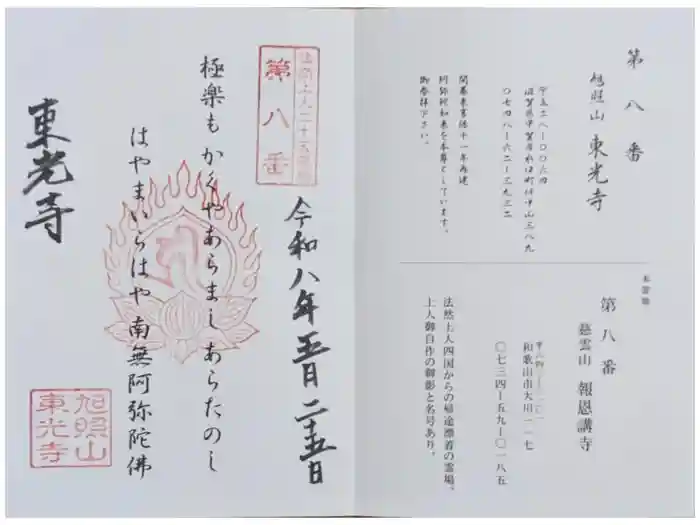 第八番
旭照山 東光寺
〒五二八-〇〇六四
滋賀県甲賀市水口町伴中山三八九
〇七四八-六二-三九三二
十一年再建
阿弥陀如来を本尊としています。
御参拝下さい。
本霊場
第八番
慈雲山 報恩講寺
和歌山市大川一一七
〇七三四-五九-〇一八五
法然上人四国からの帰途漂着の霊場。
上人御自作の御影と名号あり。
第八番
令和八年五月二十五日
極楽もかくやあらましあらたのし
はやまいらはや南無阿弥陀佛
東光寺
旭照山
東光寺